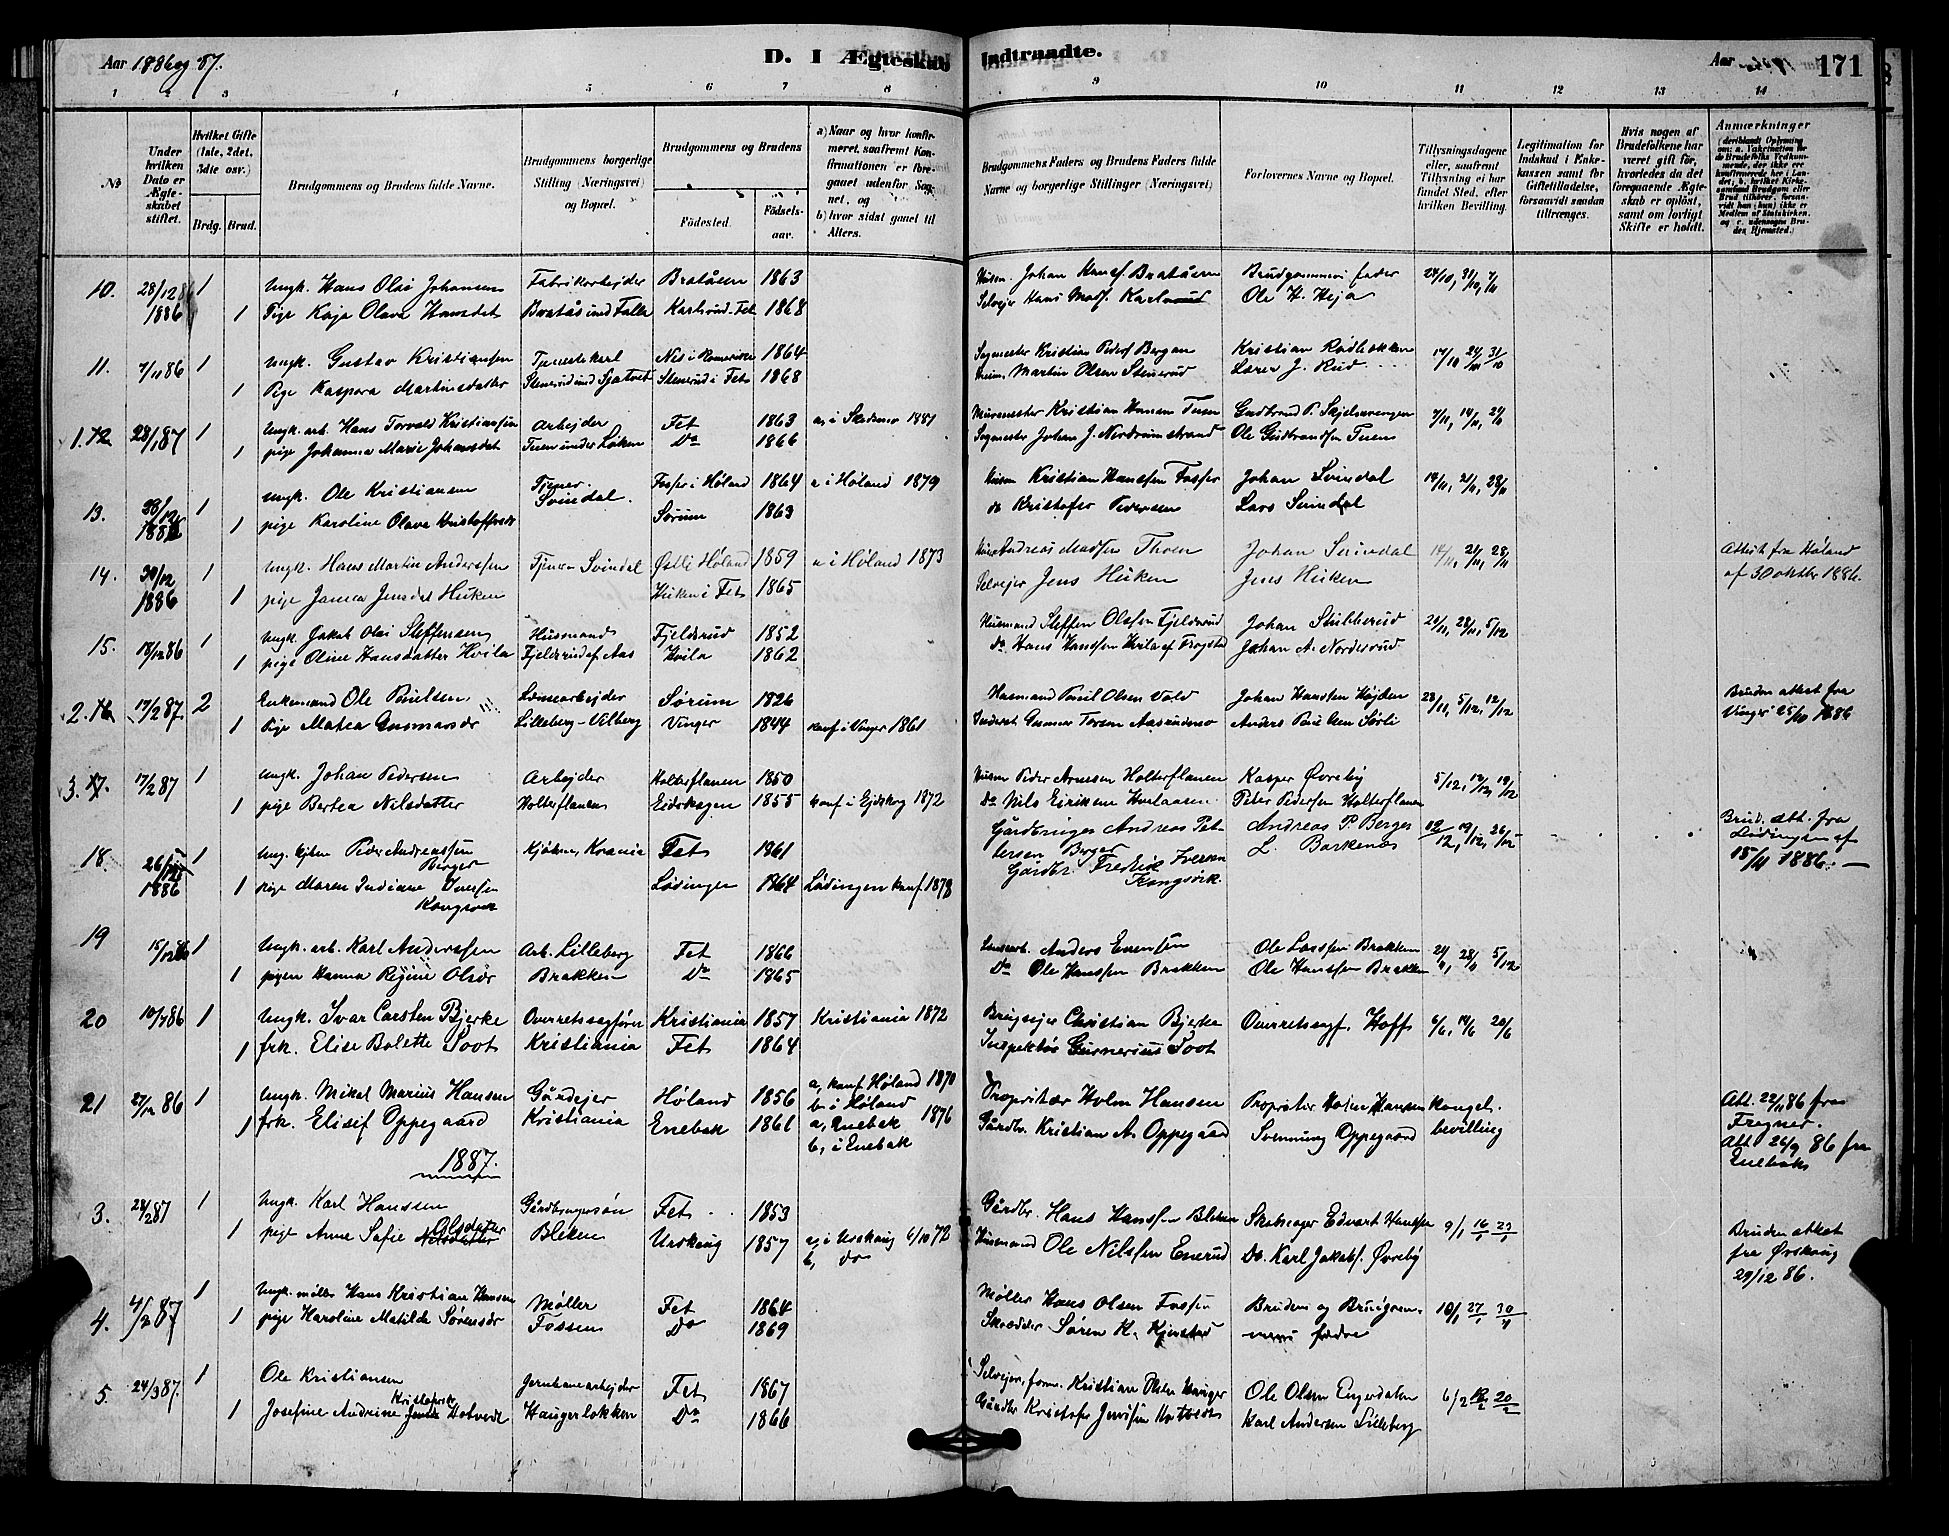 Aar 1886 og 87.
D. I Ægteskab Indtraadte.
Aar
171
1 2 3 4 5 6 7 8 9 10 11 12 13 14
No
Under hvilken Dato er Ægteskabet stiftet.
Hvilket Gifte (1ste, 2det, 3die osv.)
Brdg. Brud.
Brudgommens og Brudens fulde Navne.
Brudgommens borgerlige Stilling (Næringsvei) og Bopæl.
Brudgommens og Brudens
Fødested. Fødselsaar.
a) Naar og hvor konfirmeret, saafremt Konfirmationen er foregaaet udenfor Sognet, og
b) hvor sidst gaaet til Alters.
Brudgommens Faders og Brudens Faders fulde Navne og borgerlige Stillinger (Næringsvei)
Forlovernes Navne og Bopæl.
Tillysningsdagene eller, saafremt Tillysning ei har fundet Sted, efter hvilken Bevilling.
Legitimation for Indskud i Enkekassen samt for Giftetilladelse, forsaavidt saadan tiltrænges.
Hvis nogen af Brudefolkene har været gift før, hvorledes da det foregaaende Ægteskab er opløst, samt om lovligt Skifte er holdt.
Anmærkninger
10. 28/12 86 1 Ungk. Hans Olai Johansen Fabrikarbejder Bråtåsen 1863 Husm. Johan Hansf. Bråtåsen Brudgommens fader 24/10, 31/10, 7/11
1886 1 Pige Kaja Olava Hansdat Karlsrud Fet 1868 Selvejer Hans Mats. Karlsrud Ole H. Heja
11. 7/11 86 1 Ungk. Gustav Kristiansen Tjenestekarl Nes i Romerike 1864 Sagmester Kristian Peders Bergan Kristian Rødløkken 17/10 24/10 31/10
1 Pige Kaspara Martinsdatter Stenerud i Fet 1868 Husm. Martin Olsen Stenerud Lærer J. Rud
1. 12 28/1 87 1 Ungk. arb. Hans Torvald Kristiansen Arbejder Fet 1863 a, i Skedsmo 1881 Murmester Kristian Hansen Tuen Gudbrand P. Skjelverengen 7/11, 14/11, 21/11
1 pige Johanna Marie Johansdat Tuen under Løken Do 1866 Sagmester Johan J. Nordrumstrand Ole Gudbrandsen Tuen
13. 30/12 1 Ungk. Ole Kristiansen Tjener Fosser i Høland 1864 a i Høland 1879 Husm Kristian Hansen Fosser Johan Svindal 14/11, 21/11, 28/11
1886 1 pige Karoline Olava Kristoffersdr Svindal. Sørum 1863 do Kristofer Pedersen Lars Svindal
14. 30/12 1 Ungk. Hans Martin Andersen Tjener Svindal Østli Høland 1859 a i Høland 1873 Husm Andreas Madsen Thoen Johan Svindal 14/11, 21/11, 28/11 Attest fra Høland
1886 1 pige Janna Jensdat Heiken Heiken i Fet 1865 Selvejer Jens Heiken Jens Heiken af 30 oktbr 1886.
15. 18/12 86 1 Ungk. Jakob Olai Steffensen Husmand Fjeldsrud 1852 Husmand Steffen Olsen Fjeldsrud Johan Stubberud 21/11, 28/11, 5/12
1 pige Oline Hansdatter Hvila Fjeldsrud af Aas Hvila 1862 Do Hans Hansen Hvila af Frogstad Johan A. Nordsrud
2. 16 17/2 87 2 Enkemand Ole Paulsen Lensearbejder Sørum 1826 Husmand Paul Olsen Vold Johan Hansen Højden 28/11, 5/12, 12/12 Bruden attest fra
1 Pige Mathea Gunmarsdr Lilleberg-Velberg Vinger 1844 konf i Vinger 1861 Inderst Gunner Torsen Aasrudmo Anders Paulsen Sørli Vinger 25/10 1886
3. 17. 17/2 87 1 Ungk. Johan Pedersen Arbejder Holterflauen 1850 Husm Peder Arnesen Holterflauen Kasper Øvreby 5/12, 12/12, 19/12
1 pige Berthea Nilsdatter Holterflauen Eidskogen 1855 konf i Ejdskog 1872 Do Nils Eiriksen Peder Pedersen Holterflauen
18. 26/12 1 Ung. Peder Andreassen Berger Fet 1861 Gårdbruger Andreas Petersen Berger Andreas P. Berger 12/12, 19/12, 26/12 Brud. att. fra
1886 1 pige Maren Indiane Iversen Kongsvik Lødingen 1864 Lødingen konf 1878 Gårdbr. Fredrik Iversen Kongsvik L. Barkenæs Lødingen af 15/11 1886.
19 15/12 86 1 Ungk. arb. Karl Andersen Arb. Lilleberg Fet 1866 Lensearb. Anders Evensen Ole Larsen Brakken 21/11, 28/11 5/12
1 pigen Hanna Regine Olsdr Brakken Do 1865 Do Ole Hansen Brakken Ole Hansen Brakken
20 10/7 86 1 Ungk. Ivar Carsten Bjerke Overretssagfører Kristiania 1857 Kristiania 1872 Brugsejer Christian Bjerke Overretssagf. Hoff 6/6, 14/6 20/6
1 frk. Elise Bolette Soot Kristiania Fet 1864 Inspektør Gunerius Soot
21 27/12 86 1 Ungk. Mikal Marius Hansen Gårdejer Høland 1856 a, konf Høland 1870 b, i Høland Proprietær Holm Hansen Proprietær Holm Hansen Kongel. Att. 22/11 86 fra
1 frk. Elisif Oppegaard Kristiania Enebak 1861 a, Enebak 1876 b, i Enebak Gårdbr. Kristian A. Oppegaard Svenning Oppegaard bevilling Frogner. Att 26/9 86 fra Enebak
1887.
3. 28/2 87 1 Ungk. Karl Hansen Gårdbrugersøn Fet 1853 Gårdbr. Hans Hansen Bleken Skolesager Edvart Hansen 9/1 16/1 23/1 Bruden attest
1 pige Anne Sofie Nilsdatter Olsdatter Bleken Urskoug 1857 a, i Urskoug 6/10 72 b, do Husmand Ole Nilssen Enerud Do. Karl Jakobs. Øvreby fra Ørskoug 29/12 86.
4. 4/2 87 1 Ungk. møller Hans Kristian Hansen Møller Fet 1864 Møller Hans Olsen Fossen Brudens og Brudgommens fædre 10/1 27/1 30/1
1 pige Karoline Matilde Sørensdr Fossen Do 1869 Skrædder Søren K. Kjenstad
5. 24/3 87. 1 Ole Kristiansen Jernbanearbejder Fet 1867 Selvejer, form. Kristian Olsen Hauger Ole Olsen Engerdalen 6/2 13/2 20/2
1 Josefine Andrine Jens Kristofersdr Hotvedt Haugerløkken Do 1866 Gårdbr Kristofer Jensen Hotvedt Karl Andersen Lilleberg